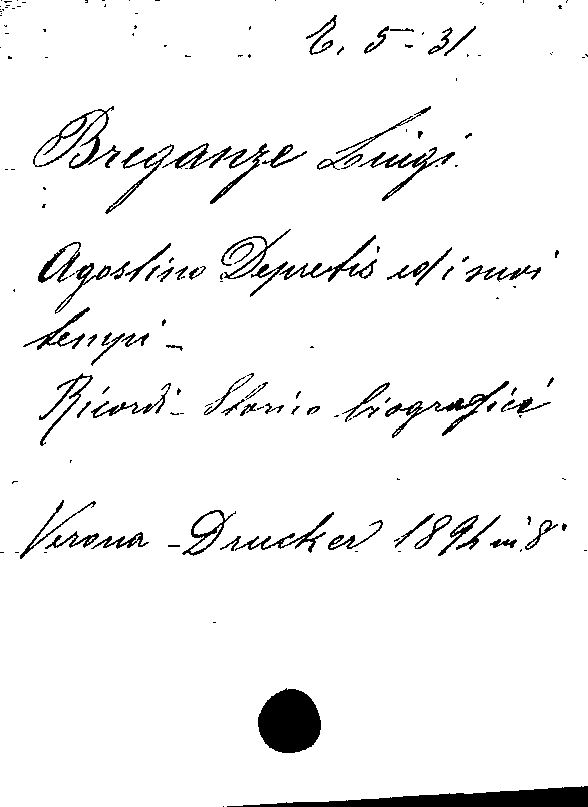 E. 5-31
Breganze Luigi
Agostino Depretis ed i suoi
tempi -
Ricordi - Storico biografici
Verona - Drucker 1894 in 8°